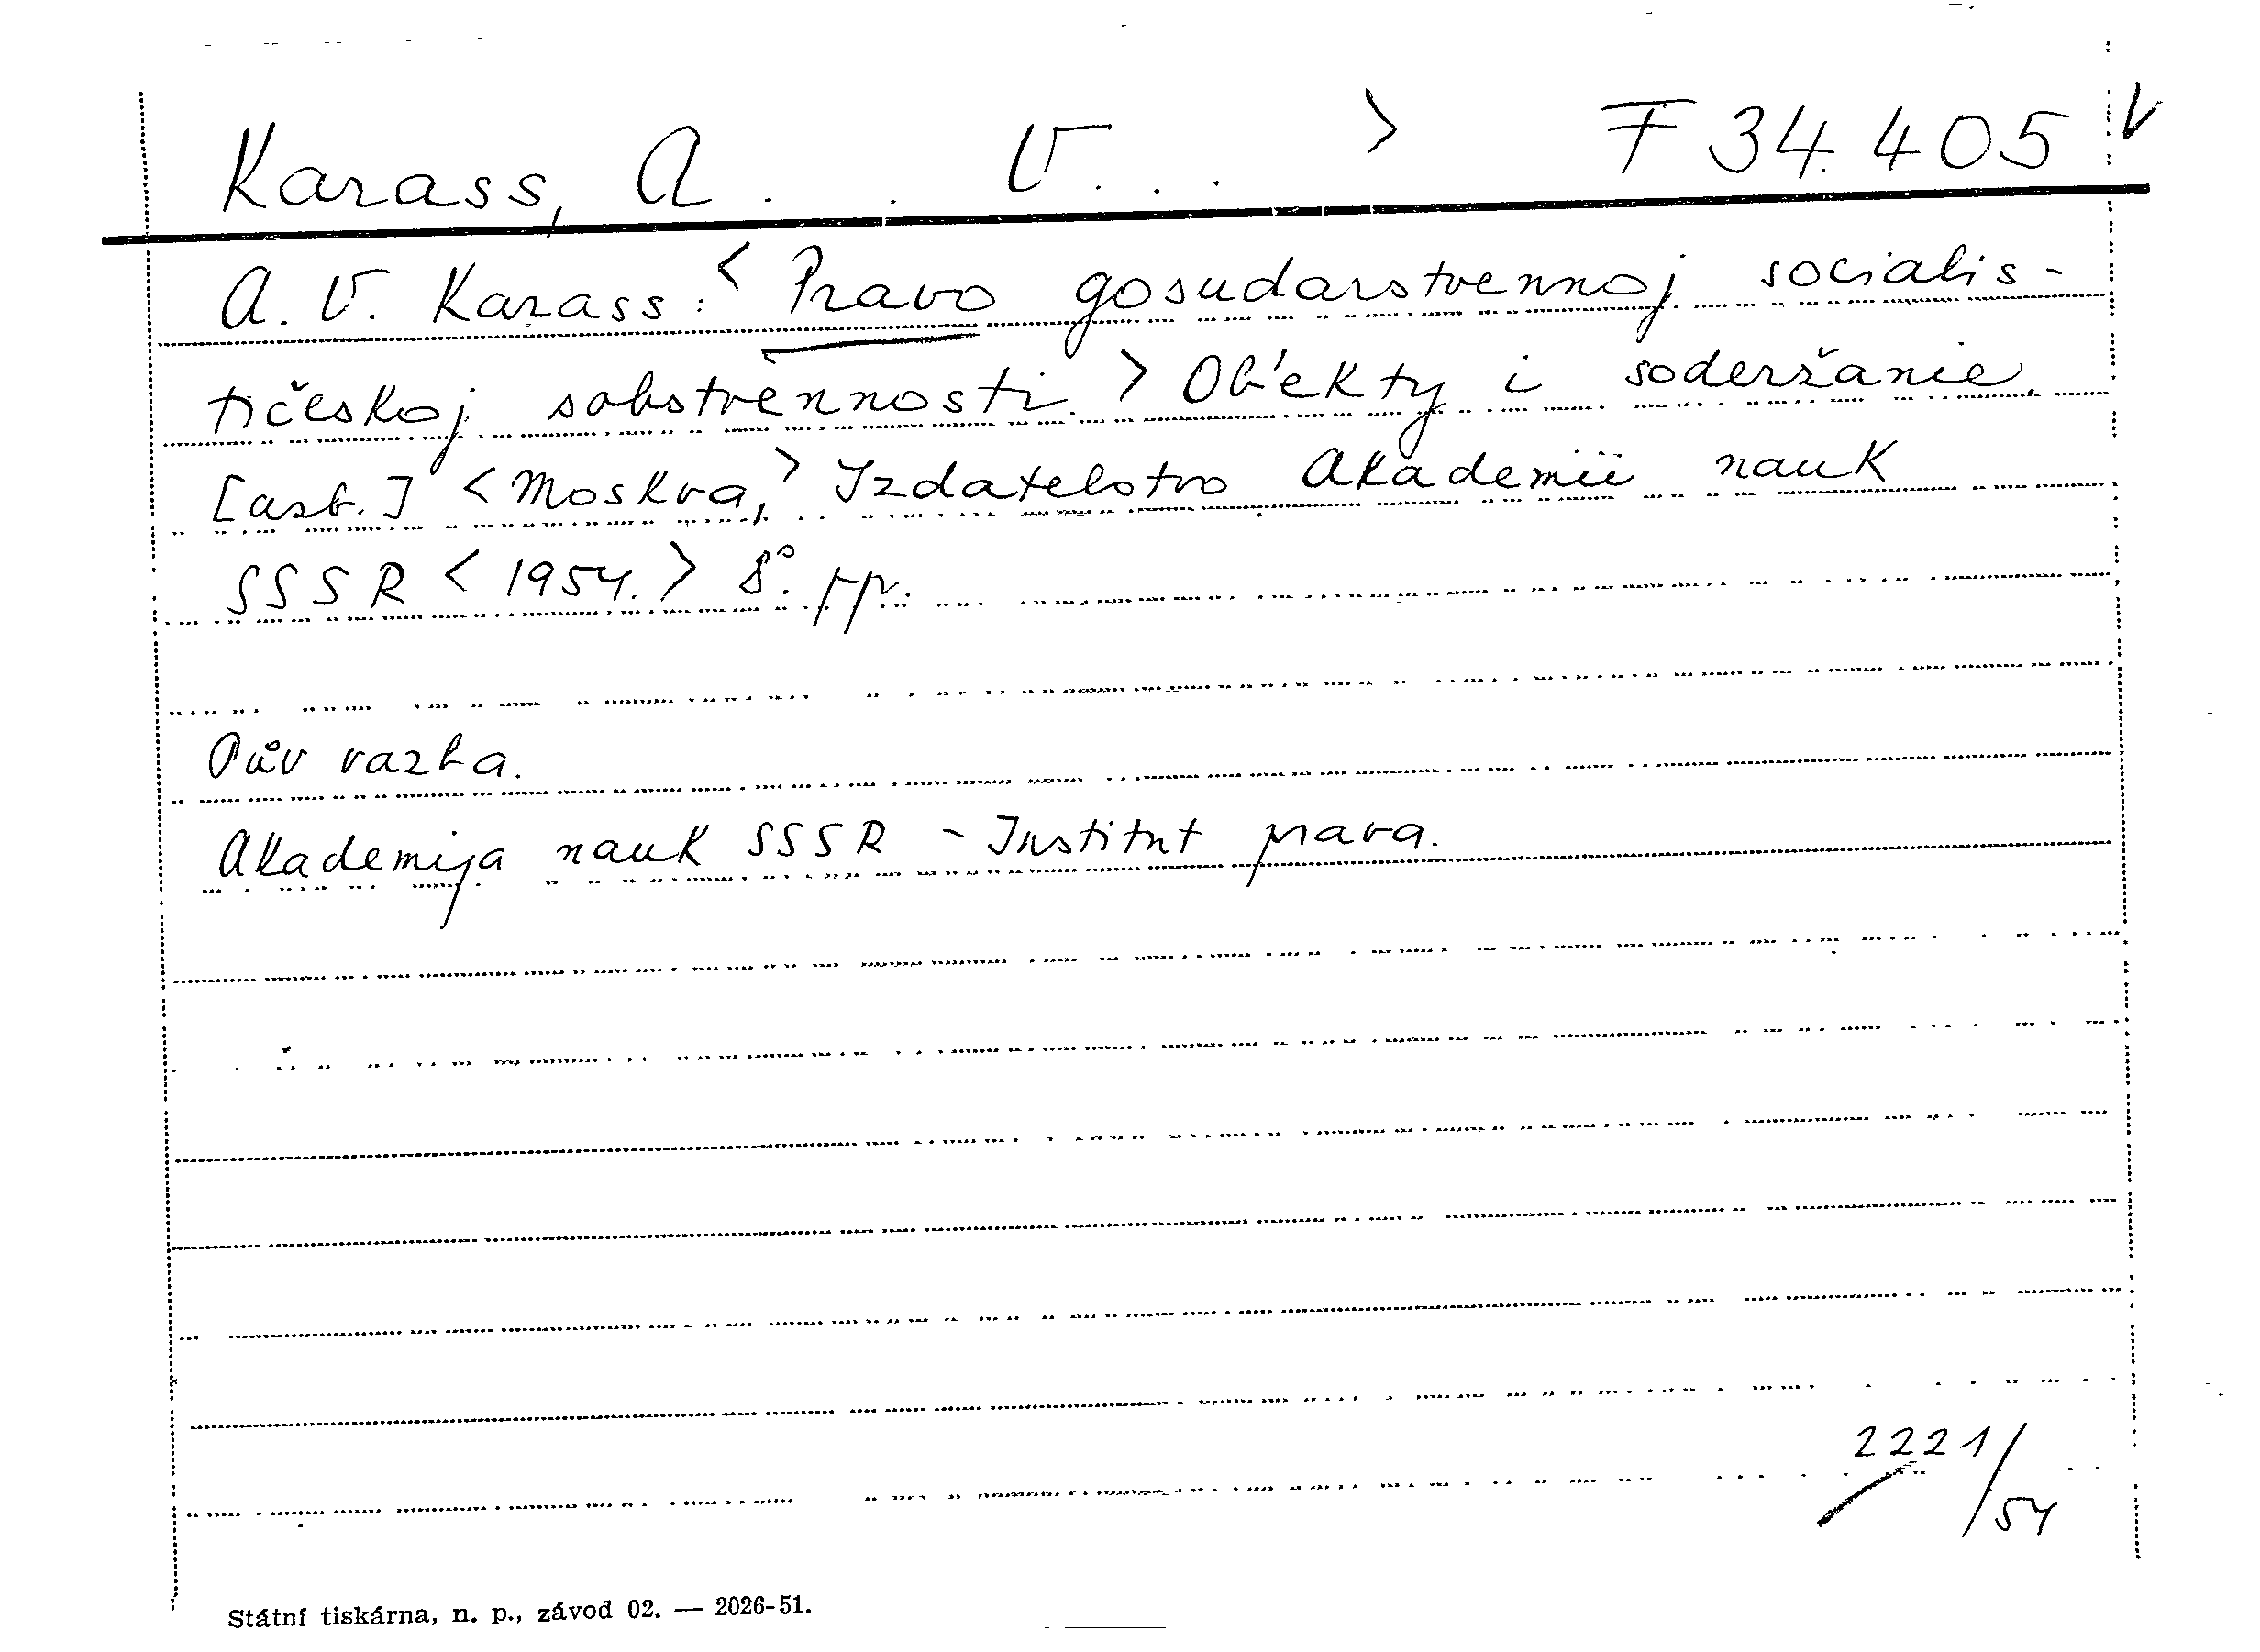 Karass, A . . V. . . > F 34.405 V
A. V. Karass: < Pravo gosudarstvennoj socialis-
tičeskoj sobstvennosti. > Ob'ekty i soderžanie.
[azb.] < Moskva, > Izdatelstvo Akademii nauk
SSSR < 1954. > 8°.
Pův vazba.
Akademija nauk SSSR - Institut prava.
2221/54
Státní tiskárna, n. p., závod 02. — 2026-51.